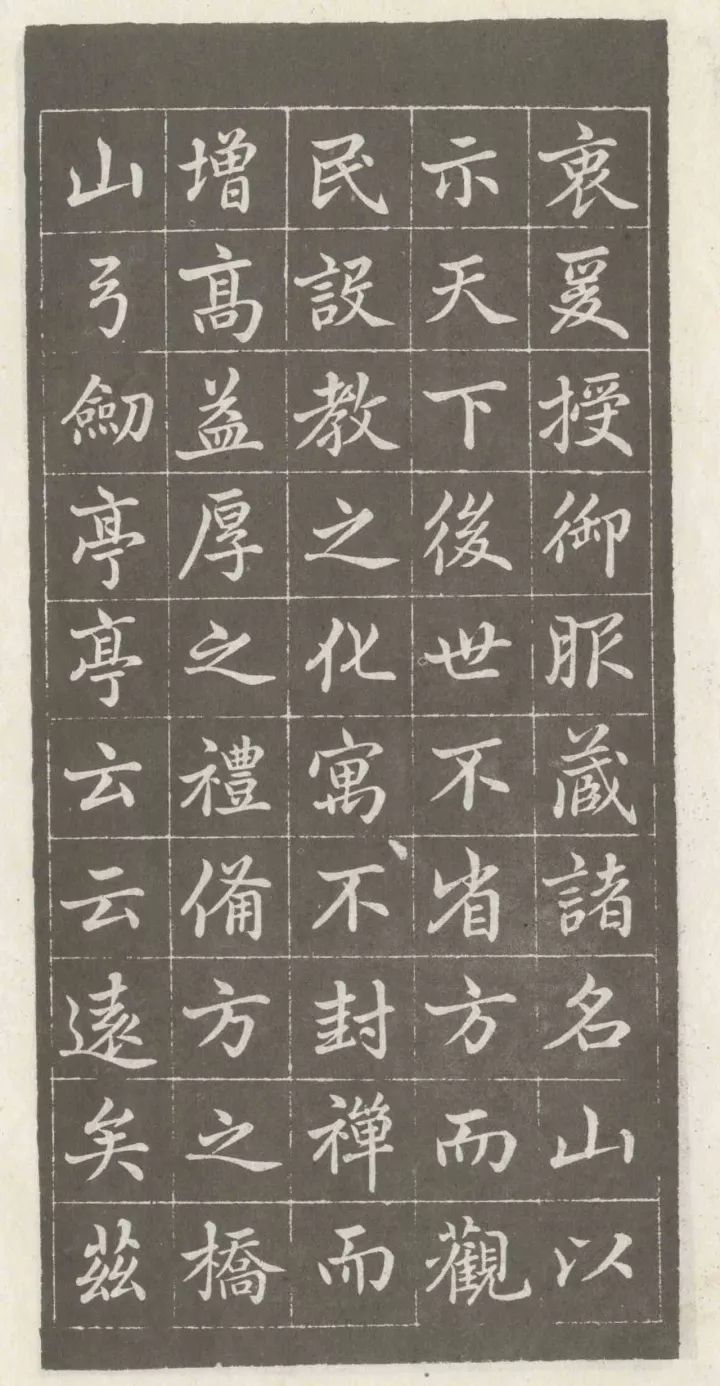 衷爰授御服藏諸名山以
示天下後世不省方而觀
民設教之化寓不封禪而
增髙益厚之禮俻方之橋
山弓劒亭亭云云遠矣茲